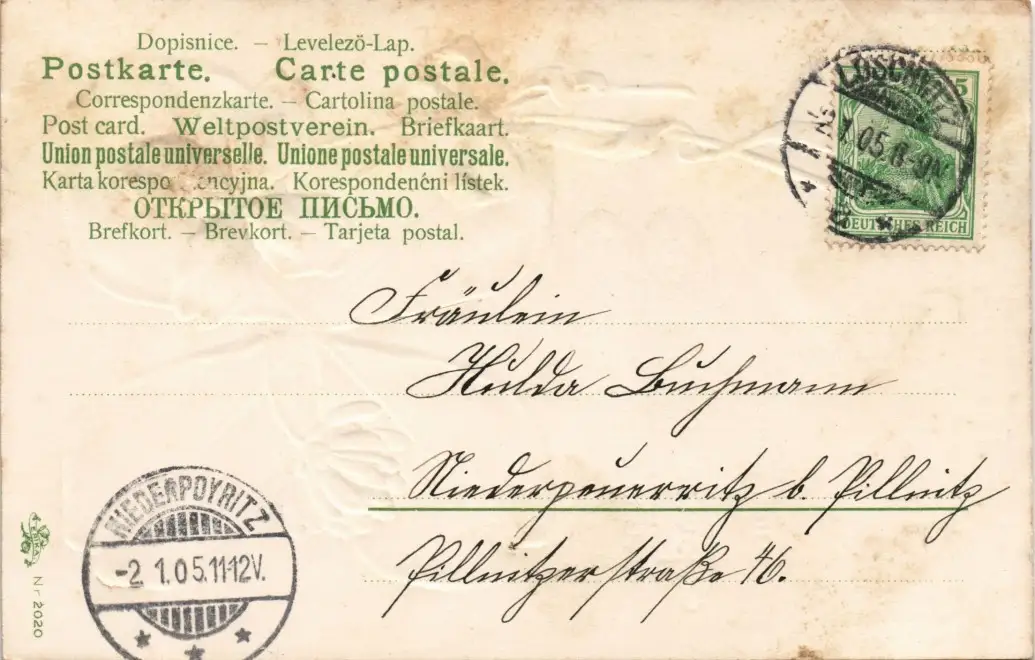 Dopisnice. – Levelezö-Lap.
Postkarte. Carte postale.
Correspondenzkarte. – Cartolina postale.
Post card. Weltpostverein. Briefkaart.
Union postale universelle. Unione postale universale.
Karta korespo ncyjna. Korespondenčni lístek.
ОТКРЫТОЕ ПИСЬМО.
Brefkort. – Brevkort. – Tarjeta postal.
LOSCHWITZ
1.05.8-9N
5
DEUTSCHES REICH
Fräulein
Hulda Buchmann
Niederpeuerritz b. Pillnitz
Pillnitzerstraße 46.
NIEDERPOYRITZ
-2.1.05.11-12V.
ERIKA
Nr 2020